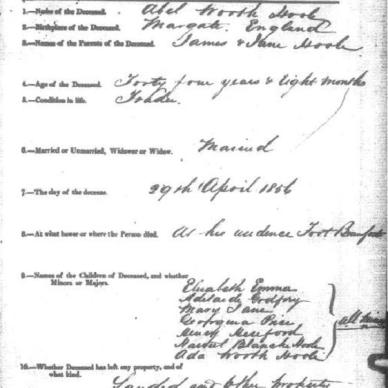 1.—Name of the Deceased. Abel Worth Hoole
2.—Birthplace of the Deceased. Margate. England
3.—Names of the Parents of the Deceased. James & Jane Hoole
4.—Age of the Deceased. Forty four years & Eight months
5.—Condition in life. Trader.
6.—Married or Unmarried, Widower or Widow. Married
7.—The day of the decease. 29th April 1856
8.—At what house or where the Person died. At his residence Fort Beaufort
9.—Names of the Children of Deceased, and whether
Minors or Majors.
Elizabeth Emma
Adelaide Godfrey
Mary Jane
Georgina
Henry Hereford
Blanche Hoole
Ada Worth Hoole
all
10.—Whether Deceased has left any property, and of
what kind.
Landed and Other Property